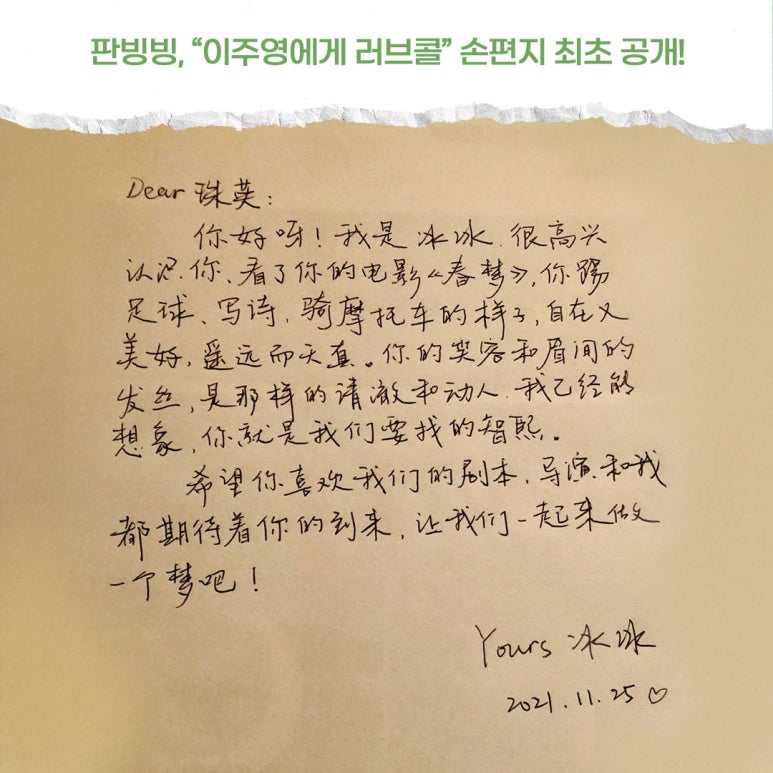 판빙빙, “이주영에게 러브콜” 손편지 최초 공개!
Dear 珠英:
你好呀! 我是冰冰. 很高兴
认识你、看了你的电影《春梦》, 你踢
足球、写诗、骑摩托车的样子, 自在又
美好, 遥远而天真。你的笑容和眉间的
发丝, 是那样的清澈和动人. 我已经能
想象, 你就是我们要找的智熙。
希望你喜欢我们的剧本, 导演和我
都期待着你的到来, 让我们一起来做
一个梦吧!
Yours 冰冰
2021.11.25♡